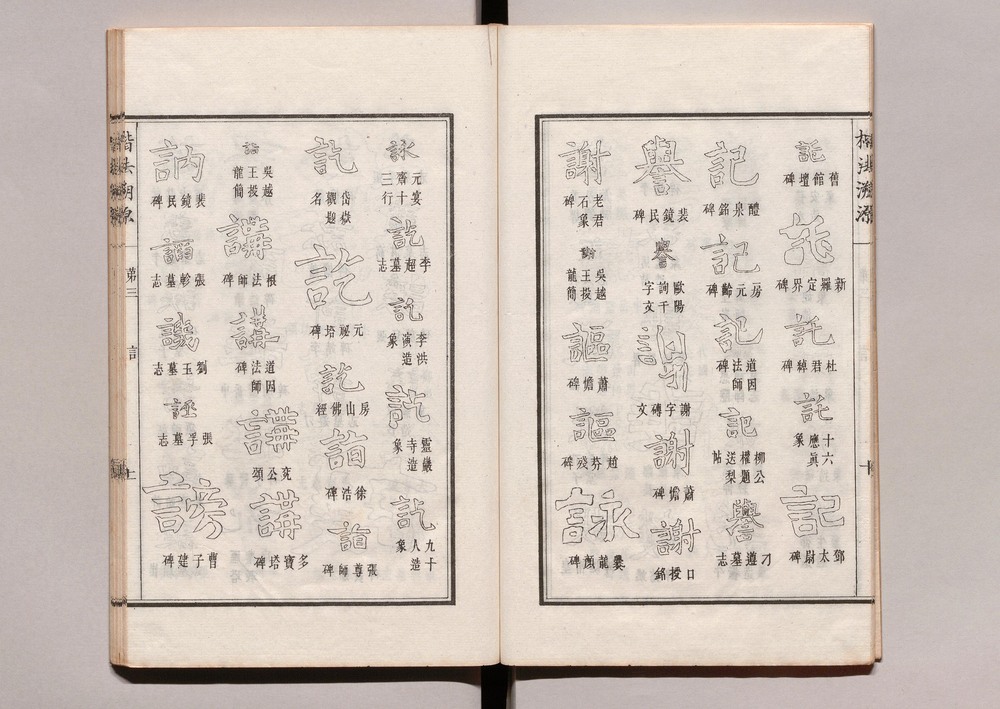 楷法溯源
託
舊館壇碑
託
新羅定界碑
託
杜君綽碑
託
十六應真象
記
鄧太尉碑
記
醴泉銘碑
記
房元齡碑
記
道因法師碑
記
柳公權題送梨帖
譽
刁遵墓志
譽
裴鏡民碑
譽
歐陽詢千字文
謝
謝字磚文
謝
蕭憺碑
謝
口授銘
謝
老君石象碑
謝
吳越王投龍簡
謳
蕭憺碑
謳
趙芬殘碑
詠
爨龍顏碑
詠
元宴齋十三行
訖
李超墓志
訖
李洪演造象
訖
靈巖寺造象
訖
九十人造象
訖
岱嶽觀題名
訖
元祕塔碑
訖
房山佛經
詣
徐浩碑
詣
張尊師碑
詣
吳越王投龍簡
講
根法師碑
講
道因法師碑
講
兗公頌
講
多寶塔碑
訥
裴鏡民碑
張軫墓志
譏
劉玉墓志
誣
張孚墓志
謗
曹子建碑
楷法溯源
第三
言
十一